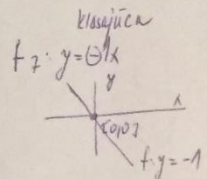 klesajúca
f₇: y = ⊖1x
y
x
[0,0]
f: y = -1